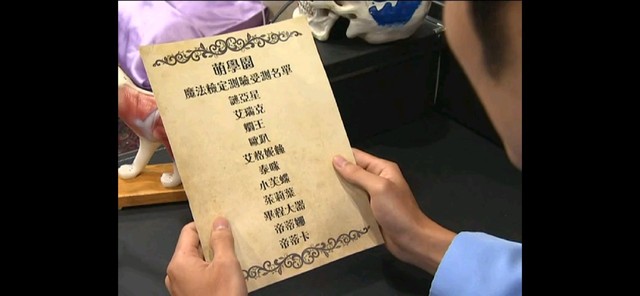 萌學園
魔法檢定測驗受測名單
謎亞星
艾瑞克
焰王
歐趴
艾格妮絲
泰咪
小芙蝶
茱莉葉
畢程大器
帝蒂娜
帝蒂卡